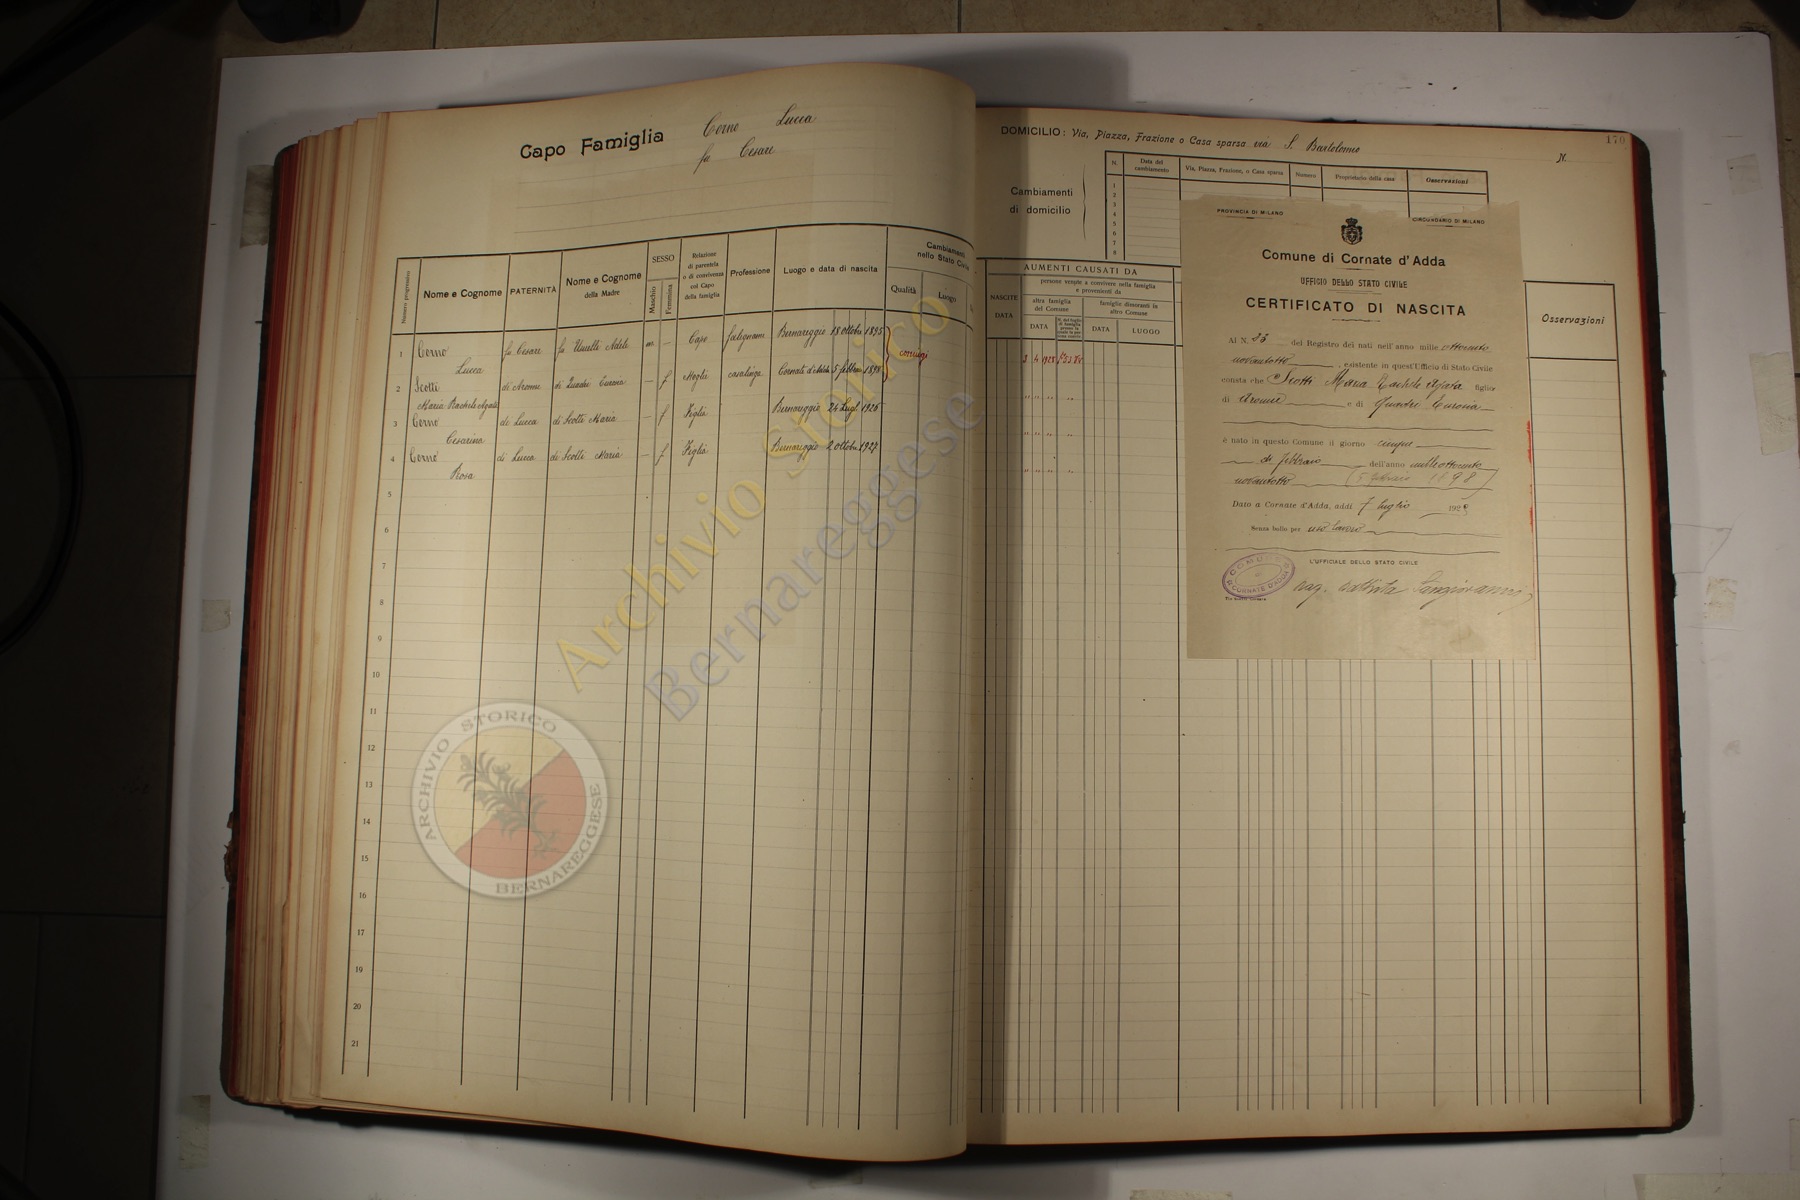 Capo Famiglia Corno Lucca
fu Cesare
Numero progressivo
Nome e Cognome
PATERNITÀ
Nome e Cognome
della Madre
SESSO
Maschio
Femmina
Relazione
di parentela
o di convivenza
col Capo
della famiglia
Professione
Luogo e data di nascita
Cambiamenti
nello Stato Civile
Qualità
Luogo
1 Corno fu Cesare fu Adele m. — Capo falegname Bernareggio 18 Ottobre 1895
Lucca
coniugi
2 Scotti di Aronne di Quadri Eurosia — f Moglie casalinga Cornate d'Adda 5 febbraio 1898
Maria Rachele Agata
3 Corno di Lucca di Scotti Maria — f Figlia Bernareggio 24 Lugl. 1926
Cesarina
4 Corno di Lucca di Scotti Maria — f Figlia Bernareggio 2 Ottobre 1927
Rosa
5
6
7
8
9
10
11
12
13
14
15
16
17
18
19
20
21
Archivio Storico
Bernareggese
ARCHIVIO STORICO
BERNAREGGESE
170
DOMICILIO: Via, Piazza, Frazione o Casa sparsa via S. Bartolomeo N.
Cambiamenti
di domicilio
N.
Data del
cambiamento
Via, Piazza, Frazione, o Casa sparsa
Numero
Proprietario della casa
Osservazioni
1
2
3
4
5
6
7
8
AUMENTI CAUSATI DA
NASCITE
DATA
persone venute a convivere nella famiglia
e provenienti da
altra famiglia
del Comune
famiglie dimoranti in
altro Comune
DATA
N. del foglio
di famiglia
DATA
LUOGO
Osservazioni
PROVINCIA DI MILANO
CIRCONDARIO DI MILANO
Comune di Cornate d'Adda
UFFICIO DELLO STATO CIVILE
CERTIFICATO DI NASCITA
Al N. 33 del Registro dei nati nell'anno mille ottocento
novantotto, esistente in quest'Ufficio di Stato Civile
consta che Scotti Maria Rachele Agata figlia
di Aronne e di Quadri Eurosia
è nato in questo Comune il giorno cinque
di febbraio dell'anno milleottocento
novantotto (5 febbraio 1898)
Dato a Cornate d'Adda, addì 7 luglio 192
Senza bollo per uso lavoro
L'UFFICIALE DELLO STATO CIVILE
COMUNE
CORNATE D'ADDA
rag. Sangiovanni